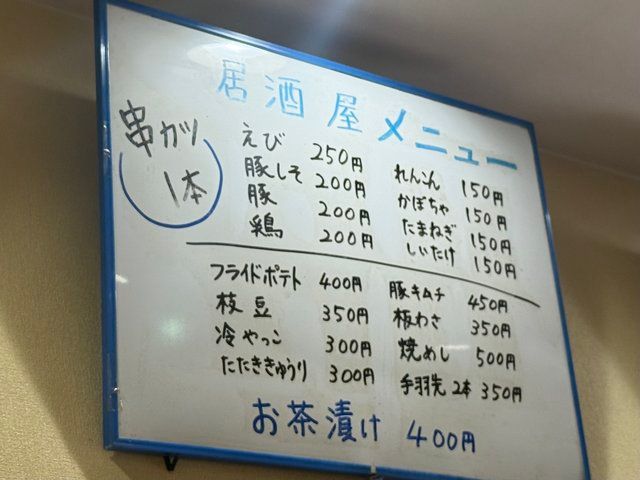 居酒屋メニュー
串カツ
1本
えび 250円
豚しそ 200円
豚 200円
鶏 200円
れんこん 150円
かぼちゃ 150円
たまねぎ 150円
しいたけ 150円
フライドポテト 400円
枝豆 350円
冷やっこ 300円
たたききゅうり 300円
豚キムチ 450円
板わさ 350円
焼めし 500円
手羽先2本 350円
お茶漬け 400円